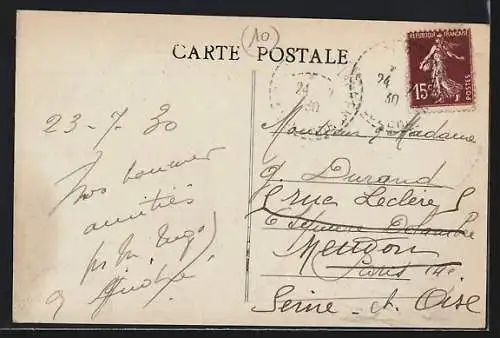 (10)
CARTE POSTALE
REPUBLIQUE FRANÇAISE
15c
POSTES
24 7
30
24 7
30
23-7-30
Nos bonnes
amitiés
Monsieur & Madame
G. Durand
5 rue Leclerc
6 square Delambre
Meudon
Paris 14e
Seine et Oise